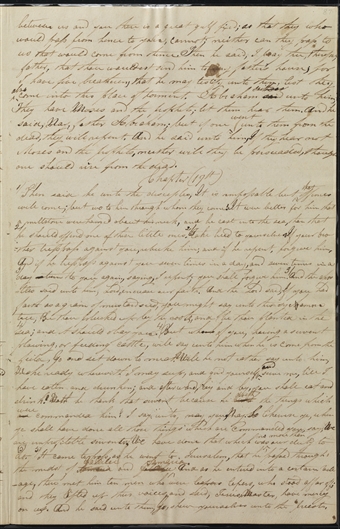 between us and you there is a great gulf fixed, so that they who
would pass from hence to you, cannot, neither can they pass to
us that would come from thence. Then he said, I pray thee, therefore,
father, that thou wouldest send him to my father's house, for
I have five brethren, that he may testify unto them, lest they
also come into this place of torment. Abraham saith unto him,
They have Moses and the prophets, let them hear them. And he
said, Nay, father Abraham, but if one went unto them from the
dead, they will repent. And he said unto him, if they hear not
Moses and the prophets, neither will they be persuaded, though
one should rise from the dead.
Chapter 17th
Then said he unto the disciples, It is impossible but that offences
will come; but wo to him through whom they come. It were better for him that
a millstone were hanged about his neck, and he cast into the sea, than that
he should offend one of these little ones. Take heed to yourselves. If your
brother trespass against you, rebuke him, and if he repent, forgive him.
And if he trespass against you seven times in a day, and seven times in a
day turn to you again, saying, I repent, you shall forgive him. And the
apostles said unto him, Lord, increase our faith. And the Lord said, If you had
faith as a grain of mustard seed, you might say unto this sycamine
tree, Be thou plucked up by the root, and be thou planted in the
sea; and it should obey you. But who of you, having a servant
plowing, or feeding cattle, will say unto him when he is come from the
field, Go and sit down to meat? Will he not rather say unto him,
Make ready wherewith I may sup, and gird yourself and serve me, till I
have eaten and drunken; and afterward, by and by, you shall eat and
drink? Doth he thank that servant because he doeth the things which
were commanded him? I say unto you, nay. So likewise ye, when
ye shall have done all those things which are commanded you, say, We
are unprofitable servants. We have done that which was our duty to
do. And it came to pass, as he went to Jerusalem, that he passed through
the midst of Galilee and Samaria. And as he entered into a certain
village, there met him ten men who were lepers, who stood afar off
and they lifted up their voices, and said, Jesus, Master, have mercy
on us. And he said unto them, Go show yourselves unto the Priests,